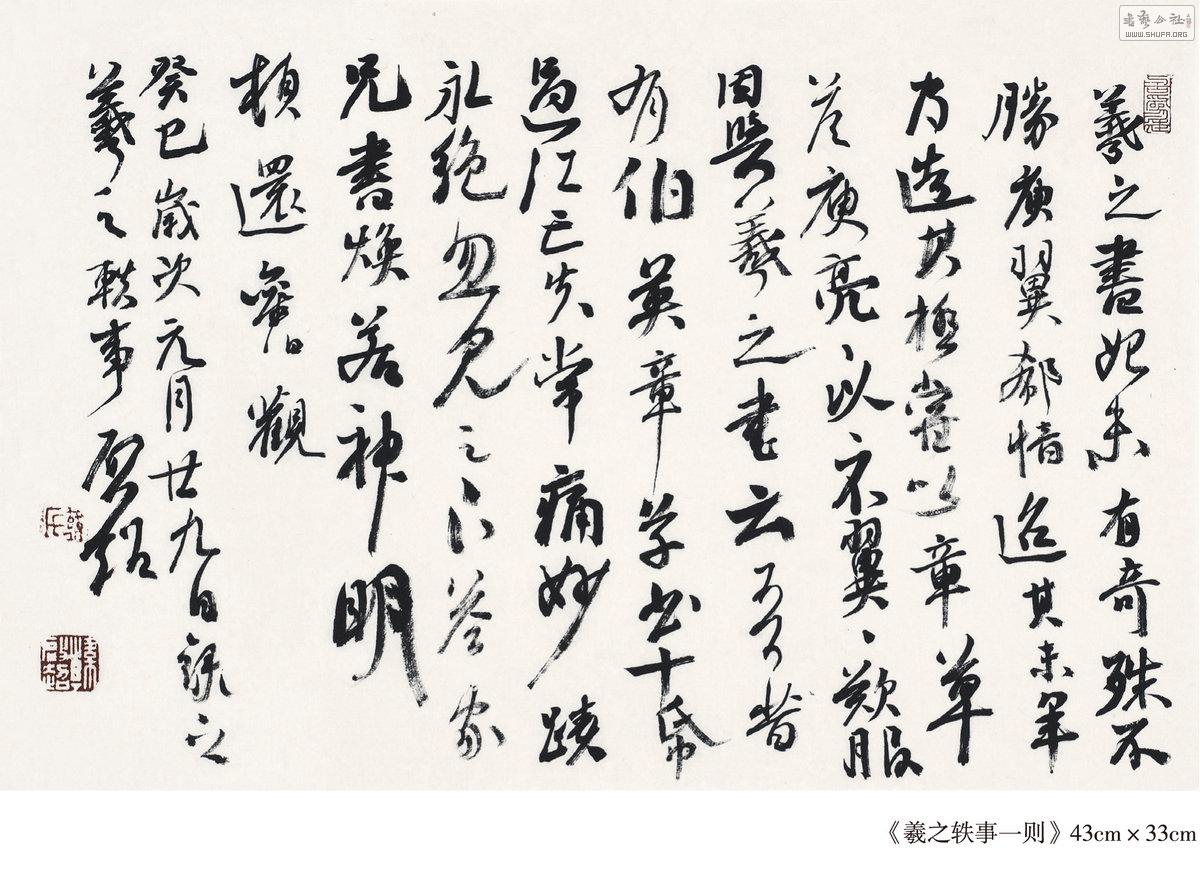 羲之書始未有奇殊不
勝庾翼郗愔迨其末年
乃造其極嘗以章草
答庾亮々以示翼々歎服
因與羲之書云吾昔
有伯英章草书十帋
過江亡失常痛妙蹟
永絕忽見足下答家
兄書煥若神明
頓還舊觀
癸巳歲次元月廿九日錄之
羲之軼事
《羲之轶事一则》43cm × 33cm
书艺公社
WWW.SHUFA.ORG